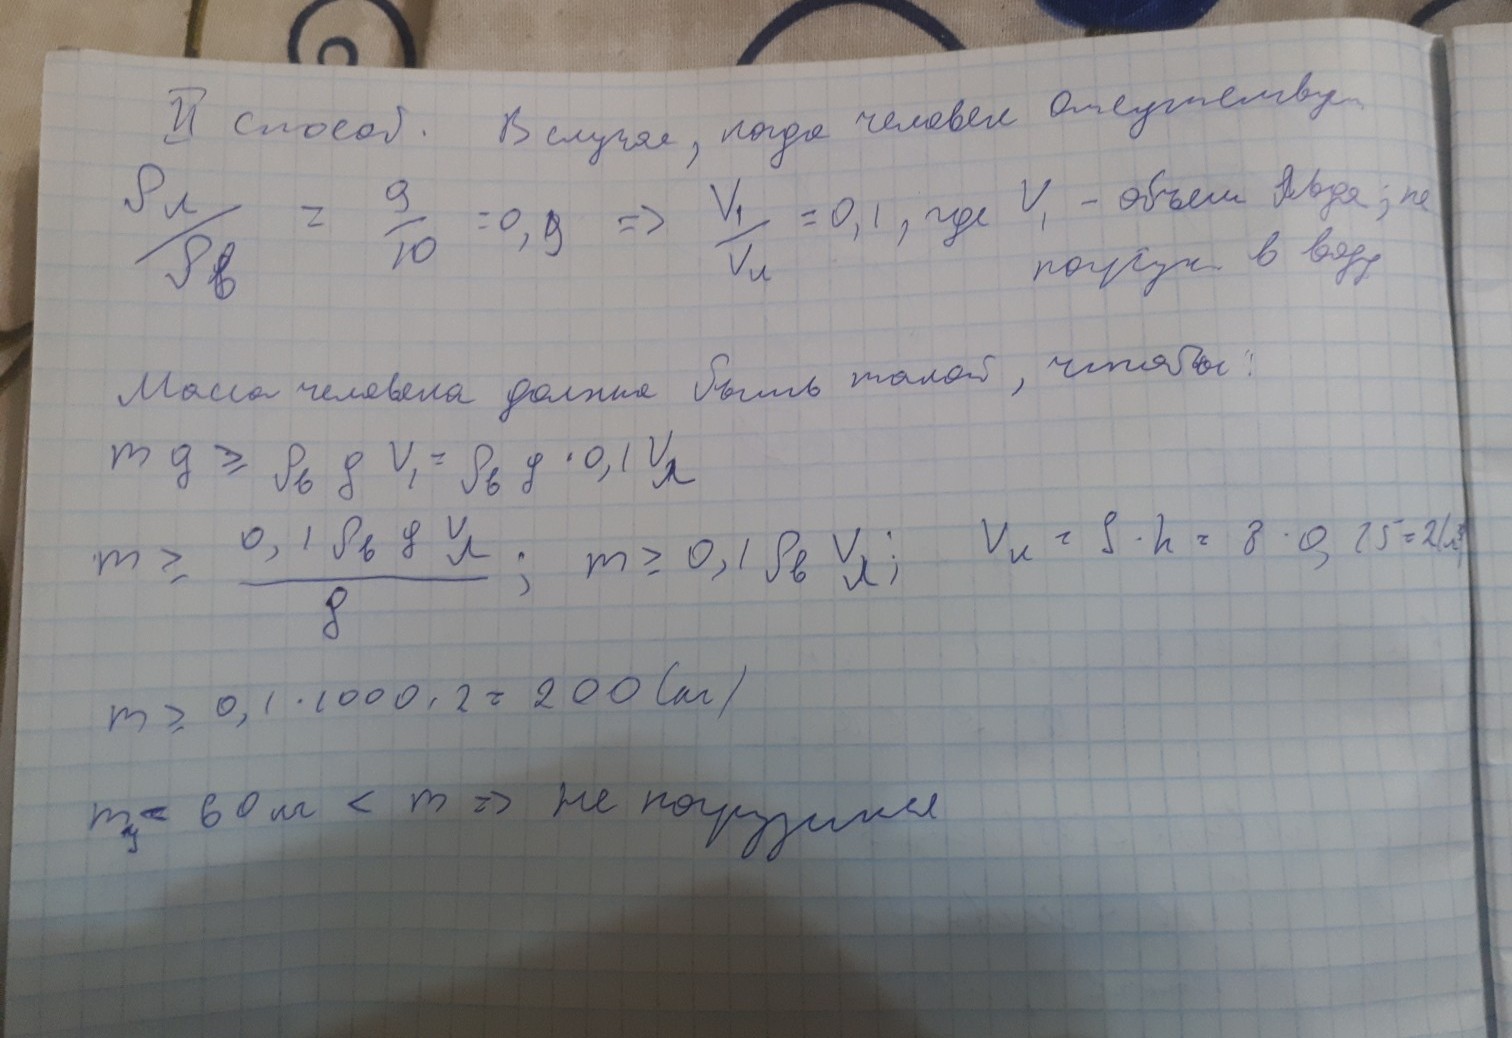 II способ. В случае, когда человек отсутствует
ρл/ρв = 9/10 = 0,9 => V₁/Vл = 0,1, где V₁ - объем льда, не
погруж в воду
Масса человека должна быть такой, чтобы:
mg ≥ ρв g V₁ = ρв g · 0,1 Vл
m ≥ 0,1 ρв g Vл / g ; m ≥ 0,1 ρв Vл; Vл = S · h = 8 · 0,25 = 2(м³)
m ≥ 0,1 · 1000 · 2 = 200 (кг)
mч = 60 кг < m => не погрузится